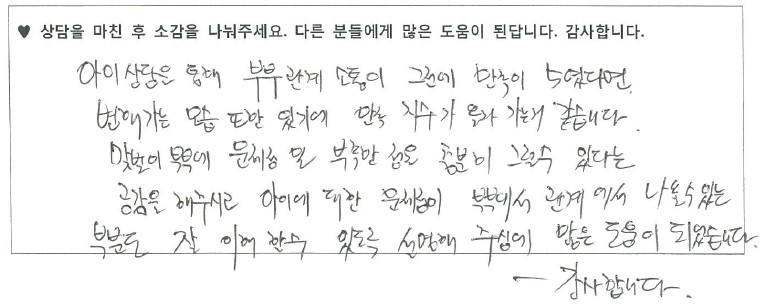 ♥ 상담을 마친 후 소감을 나눠주세요. 다른 분들에게 많은 도움이 된답니다. 감사합니다.
아이상담은 통해 부부관계 소통이 그전에 만족이 5였다면
변해가는 모습 또한 있기에 만족 지수가 올라 가는거 같습니다.
맞벌이 부부에 문제들 및 부족한 점은 충분히 그럴수 있다는
공감을 해주시고 아이에 대한 문제점이 부부에서 관계에서 나올수있는
부분도 잘 이해 할수 있도록 설명해 주심에 많은 도움이 되었습니다.
- 감사합니다.